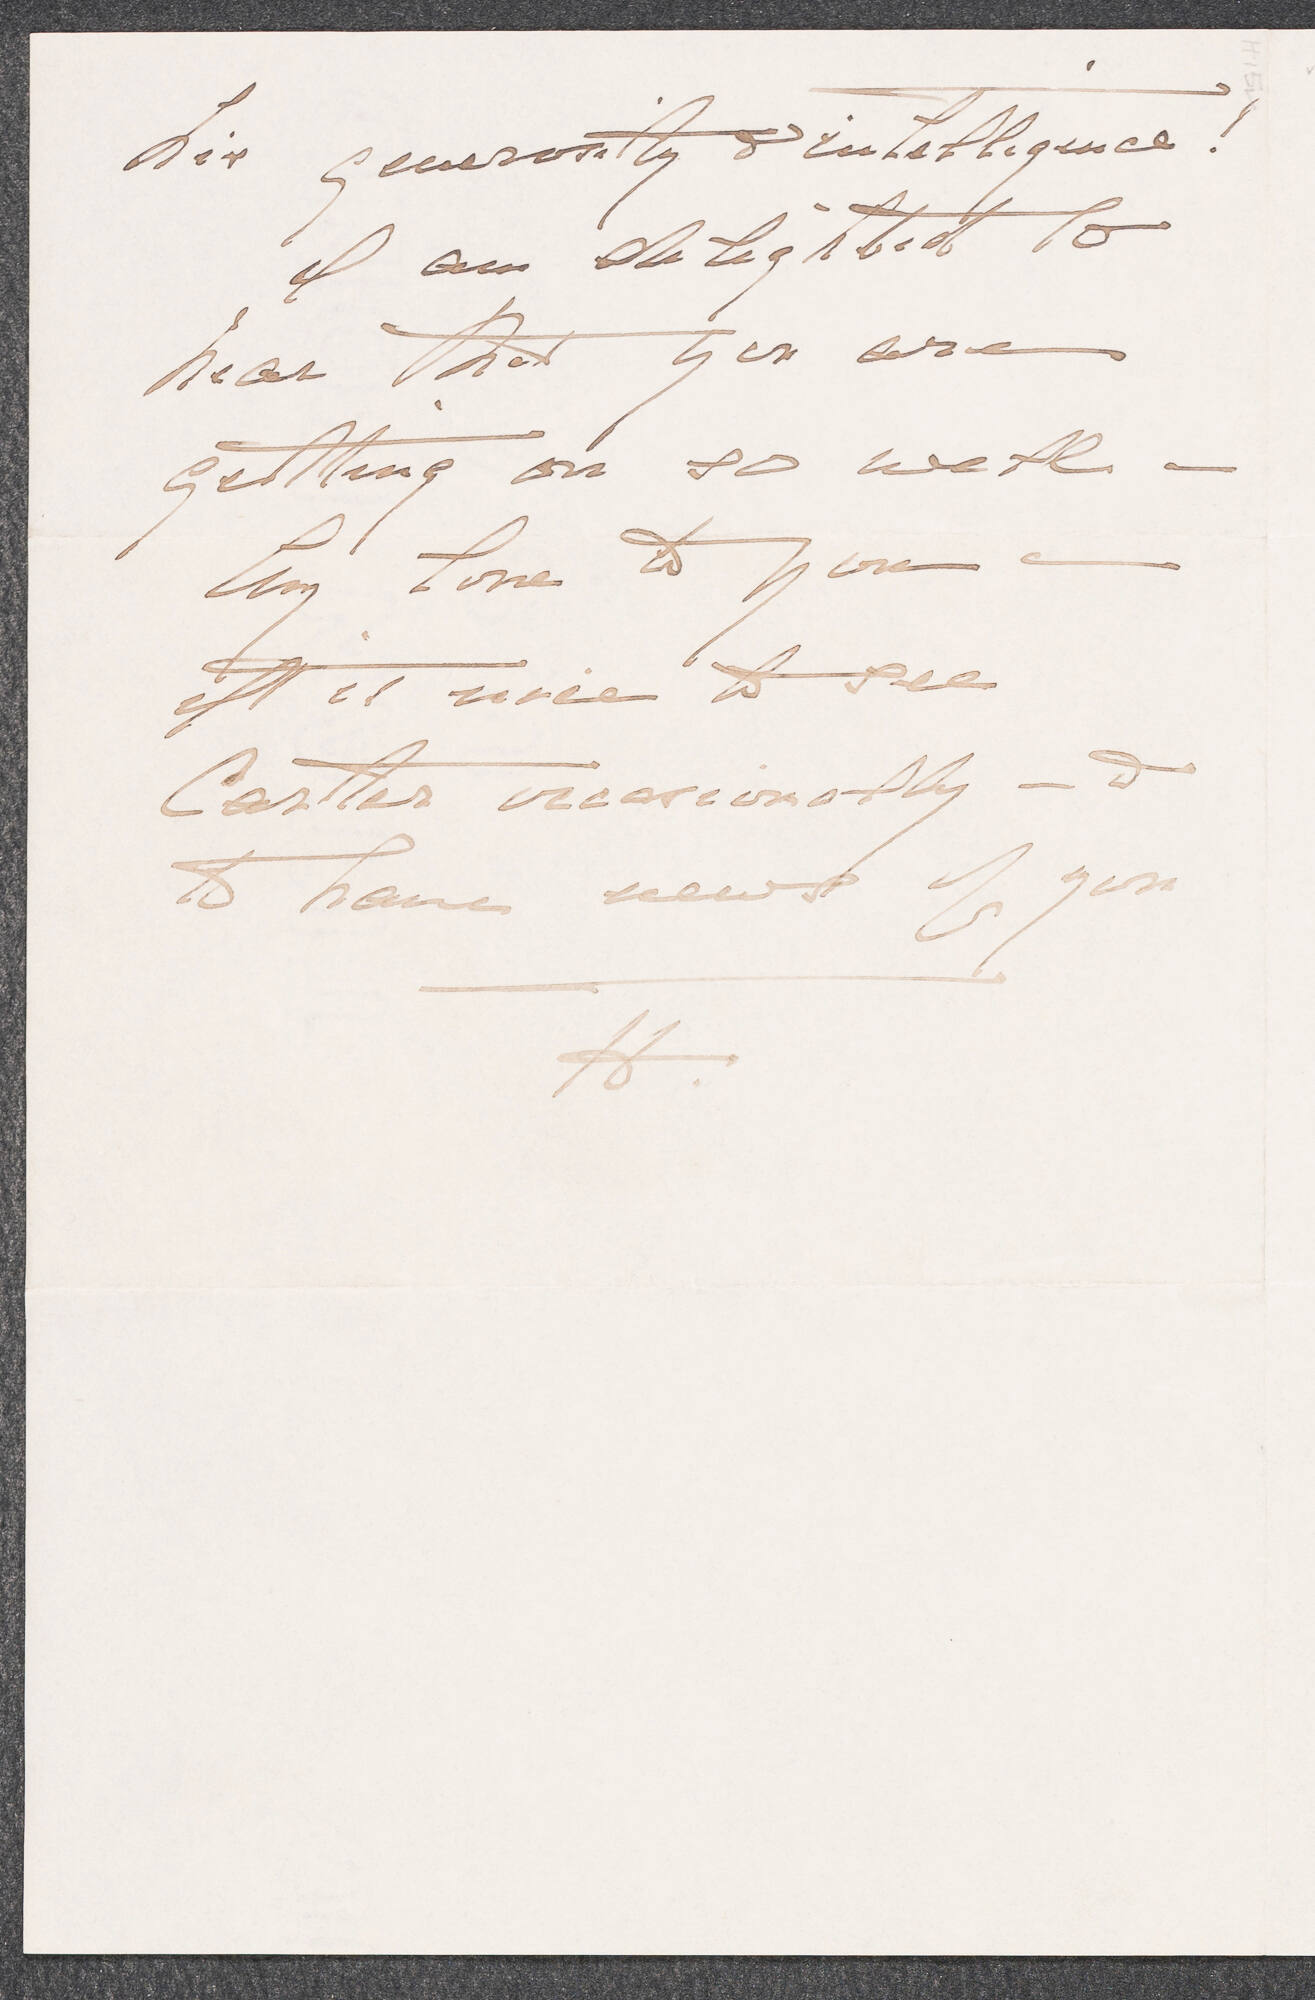 his generosity & intelligence!
I am delighted to
hear that you are
getting on so well —
My love to you —
It is nice to see
Carter occasionally — &
to have news of you
H.